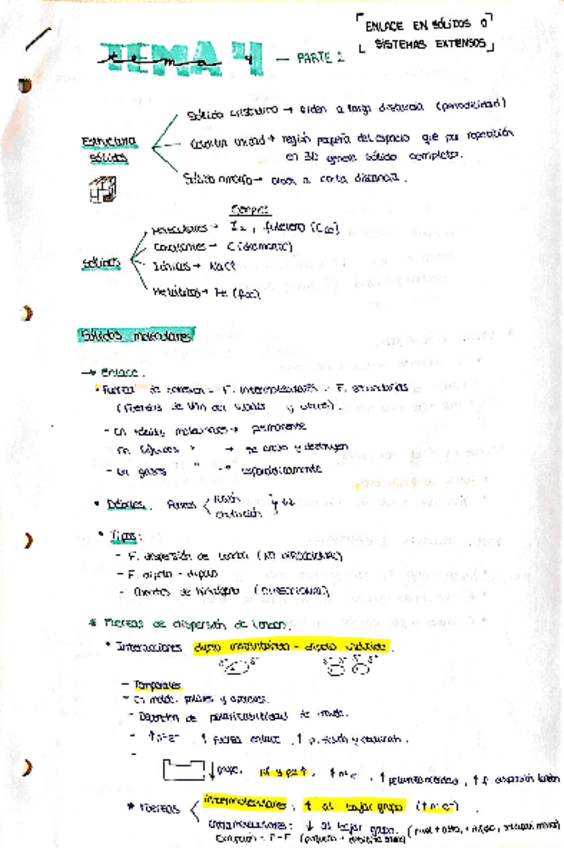 TEMA 4 — PARTE 2
ENLACE EN SÓLIDOS O
SISTEMAS EXTENSOS
Estructura sólidos
Sólido cristalino → orden a larga distancia (periodicidad)
unidad → región pequeña del espacio que por repetición
en 3D genera sólido completo.
Sólido amorfo → orden a corta distancia.
Ejemplos
Sólidos
Moleculares → I2, fulereno (C60)
Covalentes → C (diamante)
Iónicos → NaCl
Metálicos → Fe
Sólidos moleculares
→ Enlace.
• Fuerza de cohesión = F. intermoleculares = F. secundarias
(Fuerzas de Van der Waals y otras).
- En sólidos moleculares → permanente
- En líquidos " → se crean y destruyen
- En gases " → esporádicamente
• Débiles. Puntos fusión
ebullición
• Tipos:
- F. dispersión de London (NO DIRECCIONAL)
- F. dipolo - dipolo
- Puentes de hidrógeno (DIRECCIONAL)
* Fuerzas de dispersión de London.
• Interacciones dipolo instantáneo - dipolo inducido.
δ+ δ-
- Temporales
- En moléc. polares y apolares.
- Dependen de polarizabilidad de moléc.
- ↑ nº e- ↑ fuerza enlace, ↑ p. fusión y ebullición.
↓ grupo, ↑ nº e-, ↑ polarizabilidad, ↑ F. dispersión London
* Fuerzas
intermoleculares: ↑ al bajar grupo (↑ n. e-)
intramoleculares: ↓ al bajar grupo.
Excepción = F-F